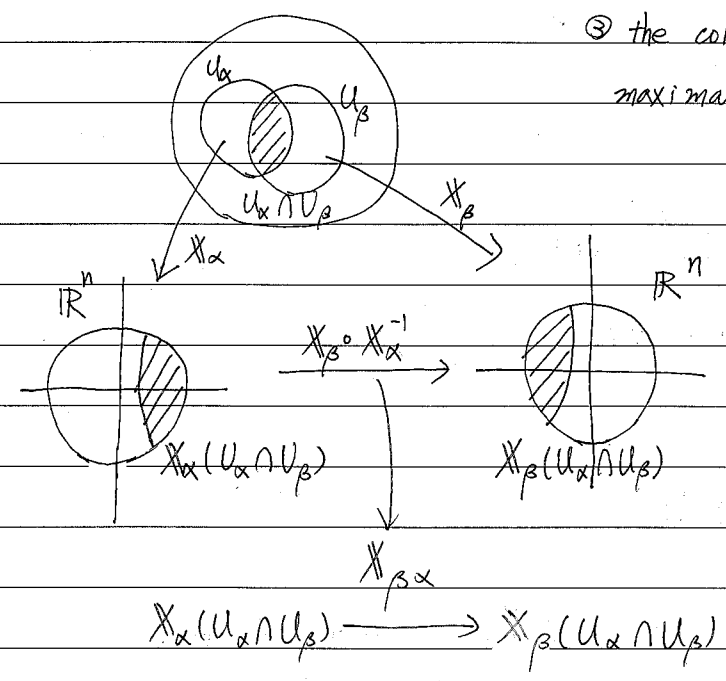 ③ the co
maxima
U_α
U_β
U_α ∩ U_β
𝕏_β
𝕏_α
ℝ^n
ℝ^n
𝕏_β ∘ 𝕏_α^{-1}
𝕏_α(U_α ∩ U_β)
𝕏_β(U_α ∩ U_β)
𝕏_{βα}
𝕏_α(U_α ∩ U_β) ⟶ 𝕏_β(U_α ∩ U_β)